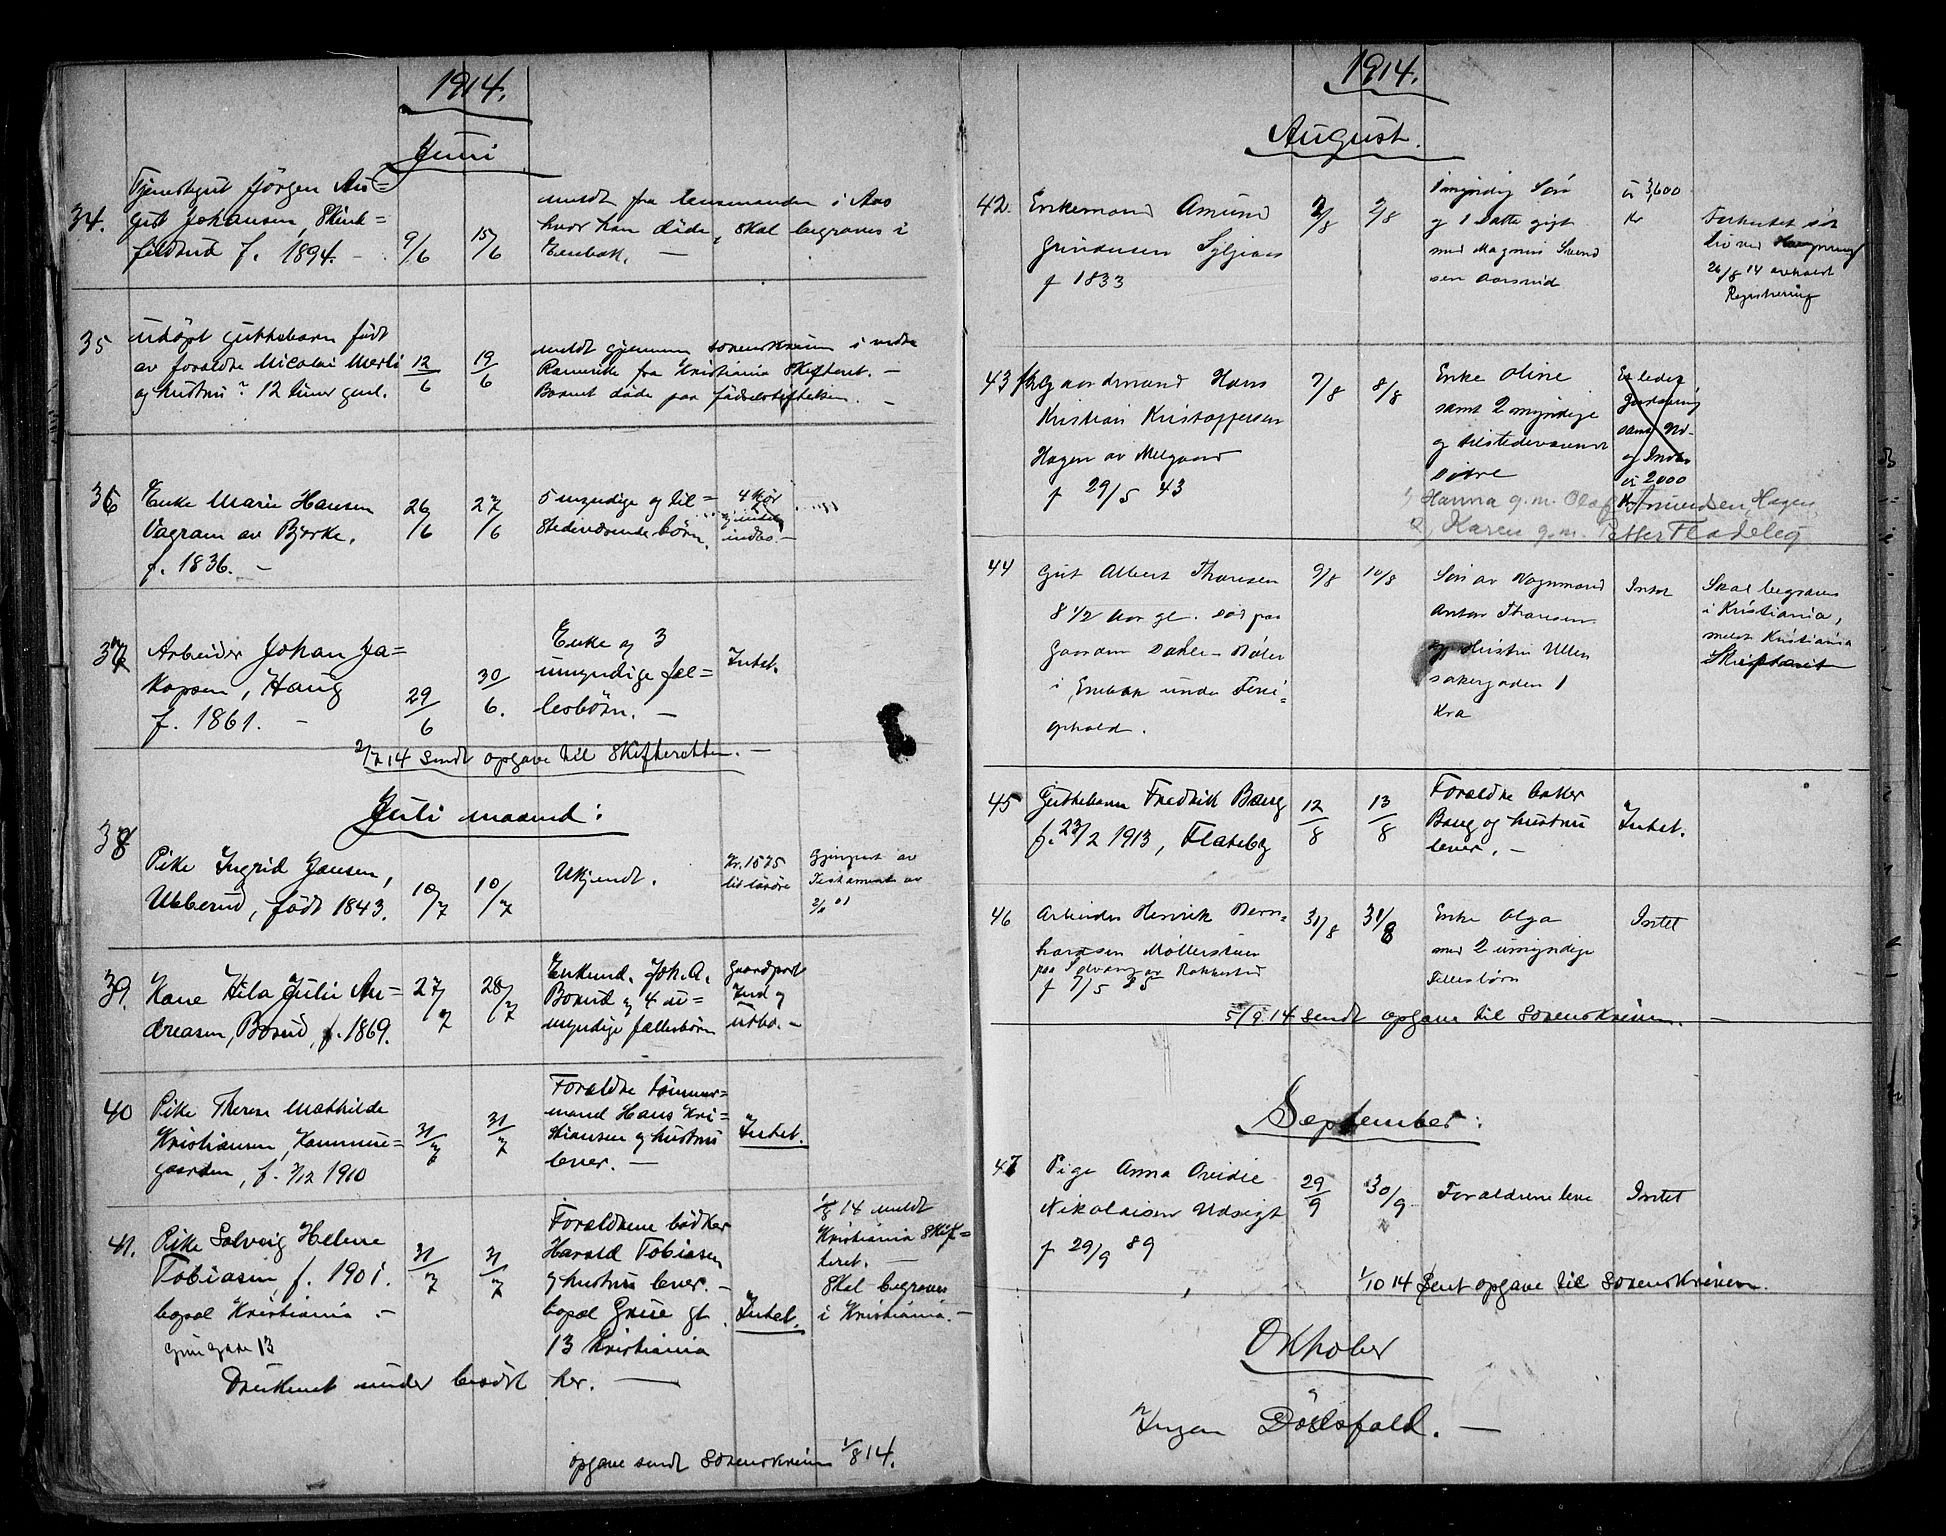 1914.
Juni
34.
Tjenestegut Jörgen Au=
gust Johansen, Skink=
feldrud f. 1894. -
9/6
15/6
meldt fra lensmanden i Aas
hvor han döde, skal begraves i
Enebak. -
35
udöpt guttebarn födt
av foraldre Nicolai Merli
og hustru? 12 timer gml.
12/6
19/6
meldt gjennem sorenskriven i nedre
Romerike fra Kristiania Skifteret. -
Barnet döde paa födselsstiftelsen. -
36
Enke Marie Hansen
Vagram av Bjerke.
f. 1836. -
26/6
27/6
5 myndige og til=
stedeværende börn.
4 Kör
indbo. -
37
Arbeider Johan Ja=
kopsen, Haug
f. 1861. -
29/6
30/6.
Enke og 3
umyndige fæl=
lesbörn. -
Intet.
2/7 14 sendt opgave til Skifteretten. -
Juli maaned:
38
Pike Ingrid Jansen,
Ubberud, födt 1843.
10/7
10/7
Ukjendt.
Kr. 1575
til lösöre
Gjenpart av
Testament av
39.
Kone Hila Julie An=
dreasen, Borud, f. 1869.
27/7
28/7
Enkemd. Joh. A.
Borud og 4 u=
myndige fællesbörn
Gaardpart
Ind og
utbo. -
40
Pike Therese Mathilde
Kristiansen, Kommune=
gaarden, f. 7/12 1910
31/7
31/7
Foraldre tömmer=
mand Hans Kri=
stiansen og hustru
lever. -
Intet.
41.
Pike Solveig Helene
Tobiasen f. 1901.
bopæl Kristiania -
Grüegade 13
31/7
31/7
Foraldrene bödker
Harald Tobiasen
og hustru lever. -
bopæl Grüe gt.
13 Kristiania
Intet.
1/8 14 meldt
Kristiania Skif=
teret. -
Skal begraves
i Kristiania. -
Druknet under besök her. -
opgave sendt Sorenskriven 1/8 14.
1914.
August.
42.
Enkemand Amund
Gundersen Syljeaas
f 1833
2/8
2/8
1 myndig Sön
og 1 datter gigt
med Magnus Svend
sen Aarsrud
ü 3,600
Kr
26/8 14 avholdt
Registrering
43
Gaardmand Hans
Kristian Kristoffersen
Hagen av Melgaard
f 29/5 43
7/8
8/8
Enke Oline
samt 2 myndige
og tilstedeværende
dötre
samt Ud-
og Indbo
ü 2000
Kr
1, Hanna g. m. Olaf Amundsen Hagen
2, Karen g. m. Petter Fladeleg
44
Gut Albert Thoresen
8 1/2 Aar gl. död paa
Gaarden Dahle - Böler
i Enebak under Feri=
ophold.
9/8
10/8
Sön av Vognmand
Anton Thoresen
og Hustru Ullen
sakergaden 1
Kra
Intet
Skal begraves
i Kristiania,
meldt Kristiania
Skifteret
45
Guttebarn Fredrik Baug
f. 23/2 1913, Flateby
12/8
13/8
Foraldre baker
Baug og hustru
lever. -
Intet.
46
Arbeider Henrik Bern=
hardsen Möllerstuen
paa Solvang av Rakkestad
f 7/5 85
31/8
31/8
Enke Olga
med 2 umyndige
Fellesbörn
Intet
5/9 14 sendt opgave til Sorenskriven. -
September:
47
Pige Anna Ovidie
Nikolaisen Udsigt
f 29/9 89
29/9
30/9
Foraldrene leve
Intet
1/10 14 Sent opgave til Sorenskriven.
Oktober
Ingen Dödsfald. -